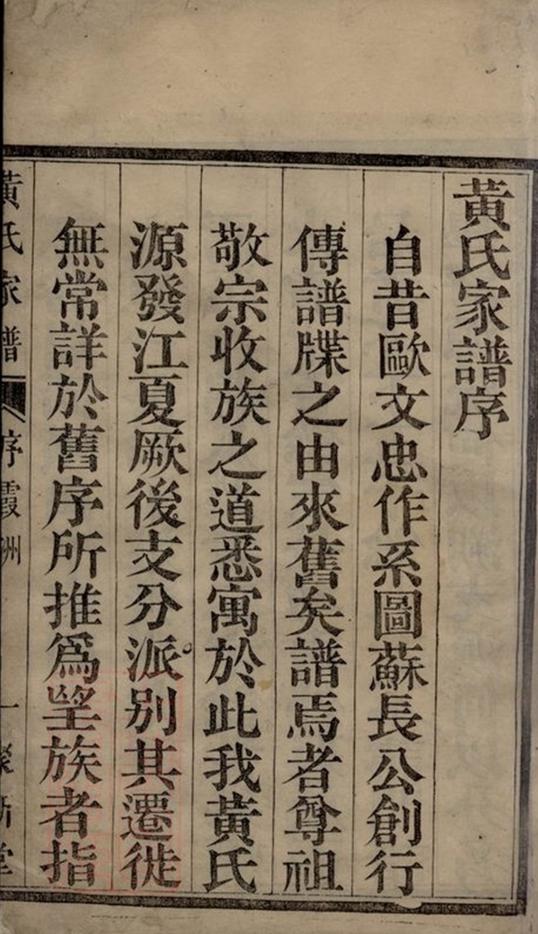 黃氏家譜序
自昔歐文忠作系圖蘇長公創行
傳譜牒之由來舊矣譜焉者尊祖
敬宗收族之道悉寓於此我黃氏
源發江夏厥後支分派別其遷徙
無常詳於舊序所推為望族者指
黃氏家譜 序 霞洲 一 聚新堂